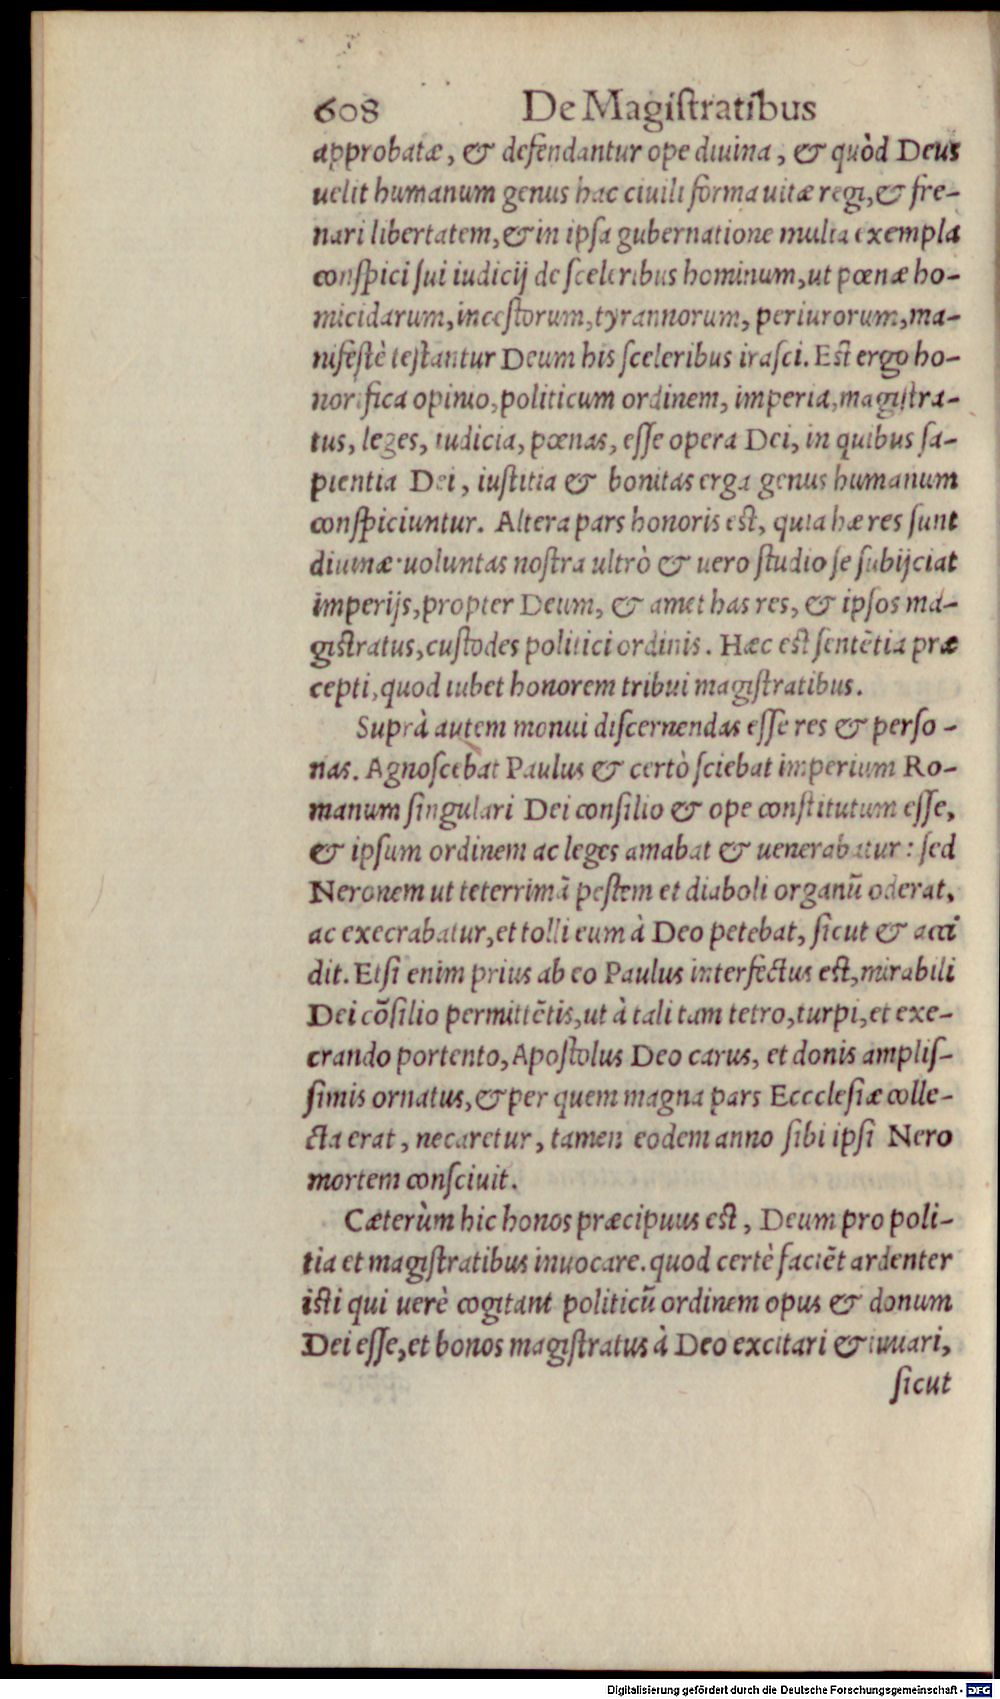 608 De Magiſtratibus
approbatæ, & defendantur ope diuina, & quòd Deus
uelit humanum genus hac ciuili forma uitæ regi, & fre-
nari libertatem, & in ipſa gubernatione multa exempla
conſpici ſui iudicij de ſceleribus hominum, ut pœnæ ho-
micidarum, inceſtorum, tyrannorum, periurorum, ma-
nifeſtè teſtantur Deum his ſceleribus iraſci. Eſt ergo ho-
norifica opinio, politicum ordinem, imperia, magiſtra-
tus, leges, iudicia, pœnas, eſſe opera Dei, in quibus ſa-
pientia Dei, iuſtitia & bonitas erga genus humanum
conſpiciuntur. Altera pars honoris eſt, quia hæ res ſunt
diuinæ uoluntas noſtra ultrò & uero ſtudio ſe ſubijciat
imperijs, propter Deum, & amet has res, & ipſos ma-
giſtratus, cuſtodes politici ordinis. Hæc eſt ſentẽtia præ
cepti, quod iubet honorem tribui magiſtratibus.
Suprà autem monui diſcernendas eſſe res & perſo-
nas. Agnoſcebat Paulus & certò ſciebat imperium Ro-
manum ſingulari Dei conſilio & ope conſtitutum eſſe,
& ipſum ordinem ac leges amabat & uenerabatur: ſed
Neronem ut teterrimã peſtem et diaboli organũ oderat,
ac execrabatur, et tolli eum à Deo petebat, ſicut & acci
dit. Etſi enim prius ab eo Paulus interfectus eſt, mirabili
Dei cõſilio permittẽtis, ut à tali tam tetro, turpi, et exe-
crando portento, Apoſtolus Deo carus, et donis ampliſ-
ſimis ornatus, & per quem magna pars Eccclefiæ colle-
cta erat, necaretur, tamen eodem anno ſibi ipſi Nero
mortem conſciuit.
Cæterùm hic honos præcipuus eſt, Deum pro poli-
tia et magiſtratibus inuocare. quod certè faciẽt ardenter
iſti qui uerè cogitant politicũ ordinem opus & donum
Dei eſſe, et bonos magiſtratus à Deo excitari & iuuari,
ſicut
Digitalisierung gefördert durch die Deutsche Forschungsgemeinschaft - DFG